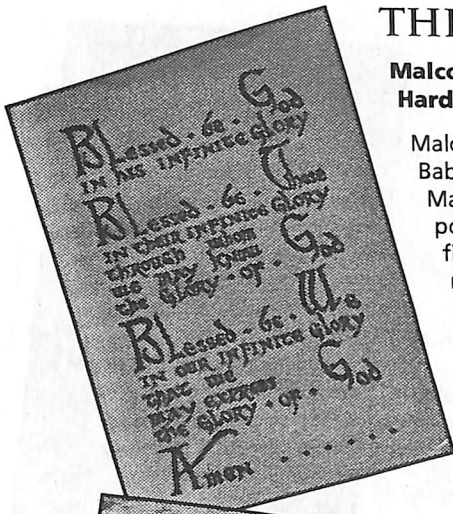 THE
Malco
Hard
Malc
Bab
Ma
po
fi
BLessed · be · God
IN his INFINITE GLORY
BLessed · be · Those
IN their INFINITE GLORY
through whom
we may know
the GLORY · OF · God
BLessed · be · Us
IN our INFINITE GLORY
that we
may express
the GLORY · OF · God
Amen · · · · · ·